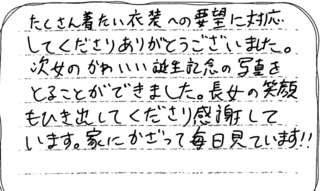 たくさん着たい衣装への要望に対応
してくださりありがとうございました。
次女のかわいい誕生記念の写真を
とることができました。長女の笑顔
もひき出してくださり感謝して
います。家にかざって毎日見ています!!